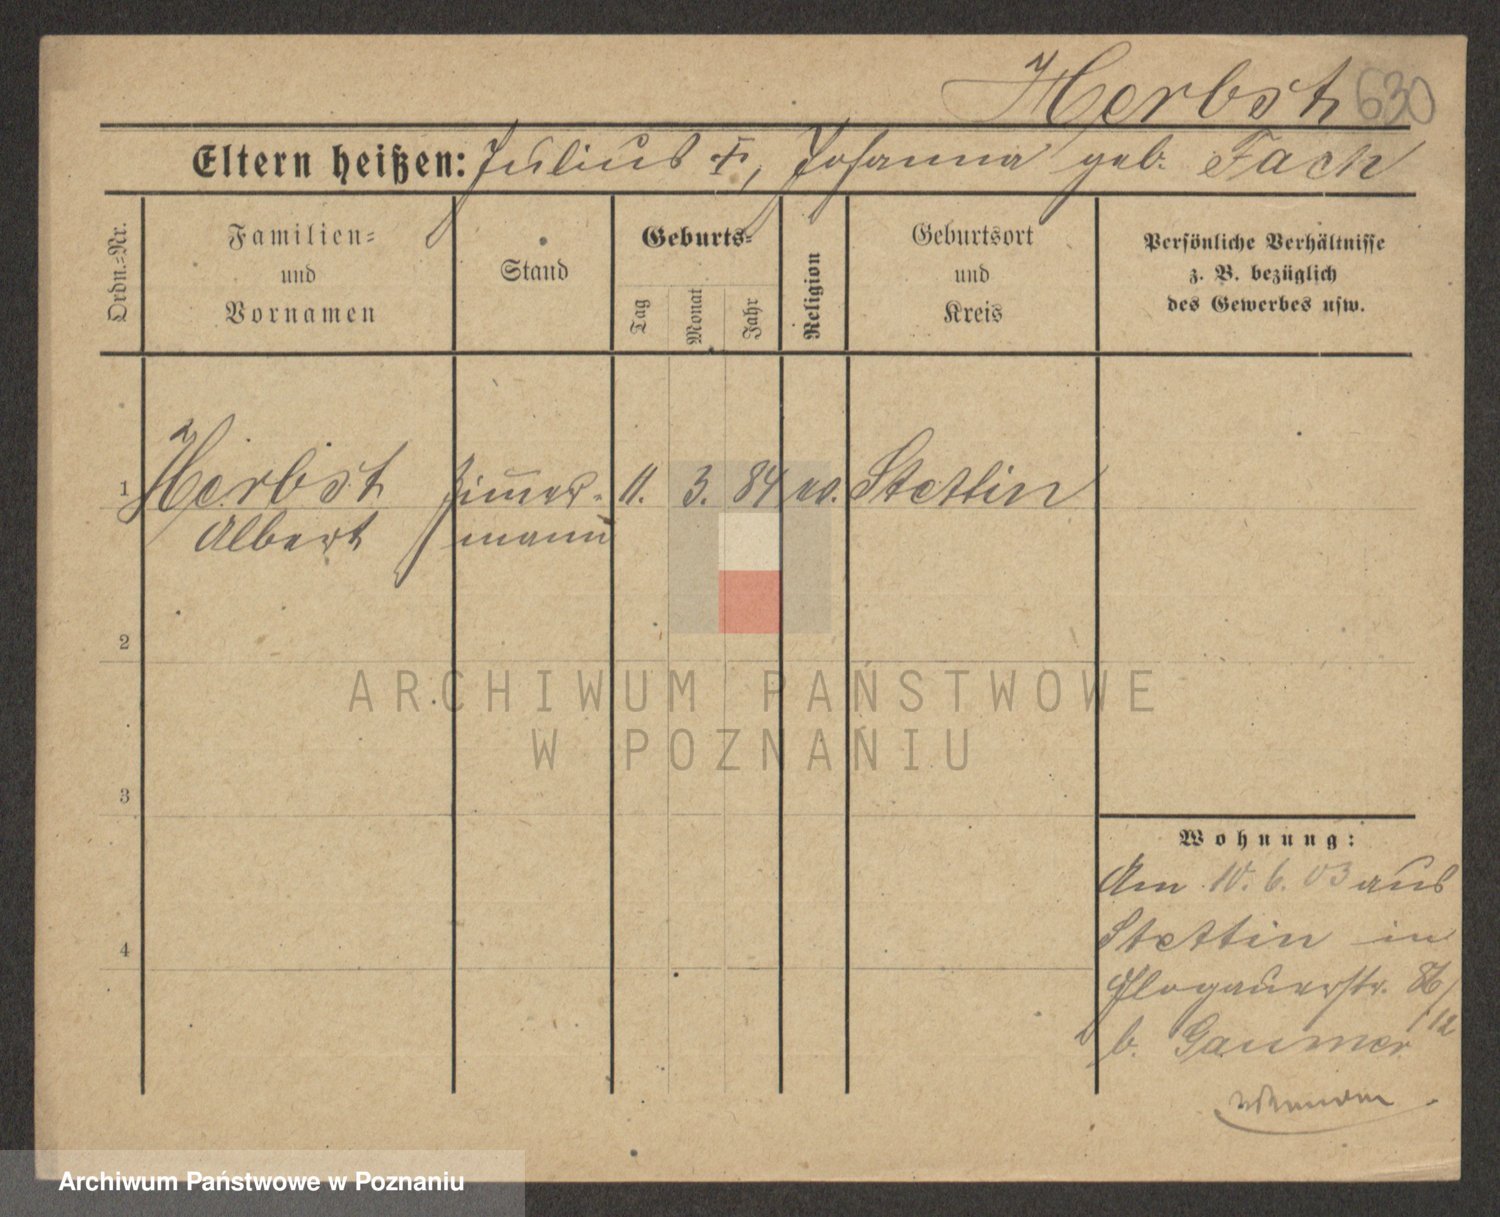 Herbst 630
Eltern heißen: Julius †, Johanna geb. Fach
Ordn.-Nr.
Familien-
und
Vornamen
Stand
Geburts-
Tag
Monat
Jahr
Religion
Geburtsort
und
Kreis
Persönliche Verhältnisse
z. B. bezüglich
des Gewerbes usw.
1 Herbst Zimmer- 11. 3. 84 ev. Stettin
Albert mann
2
3
4
ARCHIWUM PAŃSTWOWE
W POZNANIU
Wohnung:
Am 10. 6. 03 aus
Stettin in
Glogauerstr. 86/
12
b. Gaumer
Archiwum Państwowe w Poznaniu